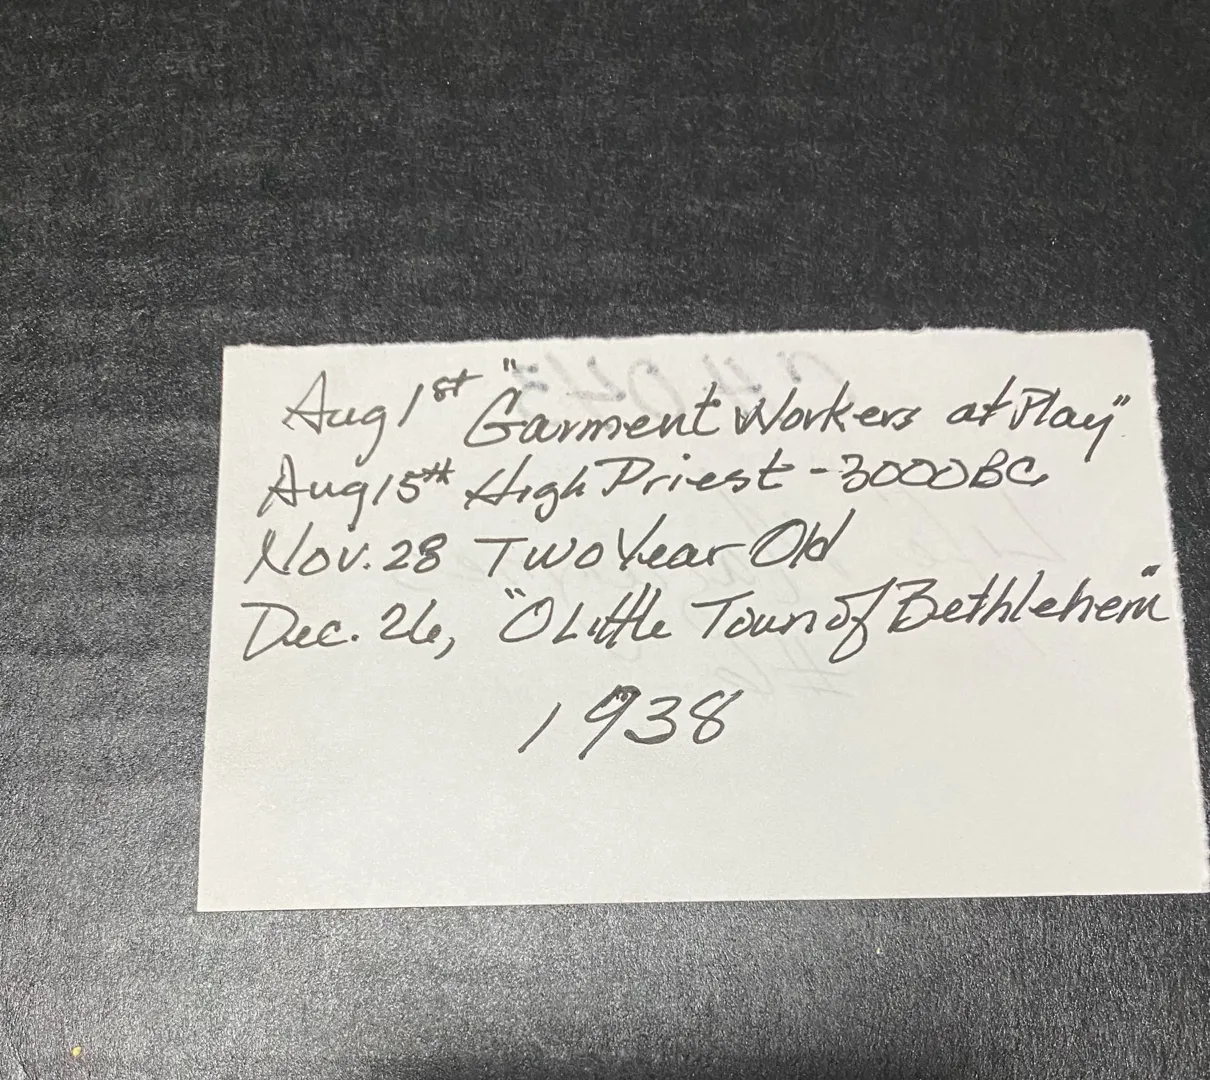 Aug 1st "Garment Workers at Play"
Aug 15th High Priest - 3000BC
Nov. 28 Two Year Old
Dec. 26, "O Little Town of Bethlehem"
1938